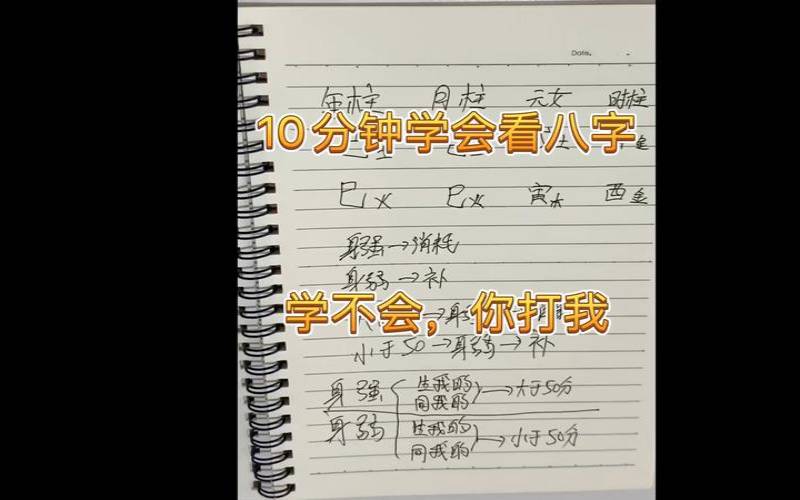 Date.
年柱 月柱 元女 时柱
10分钟学会看八字
巳火 巳火 寅木 酉金
身强→消耗
身弱→补
学不会，你打我
小于50→身弱→补
身强 生我的 同我的 →大于50分
身弱 生我的 同我的 →小于50分